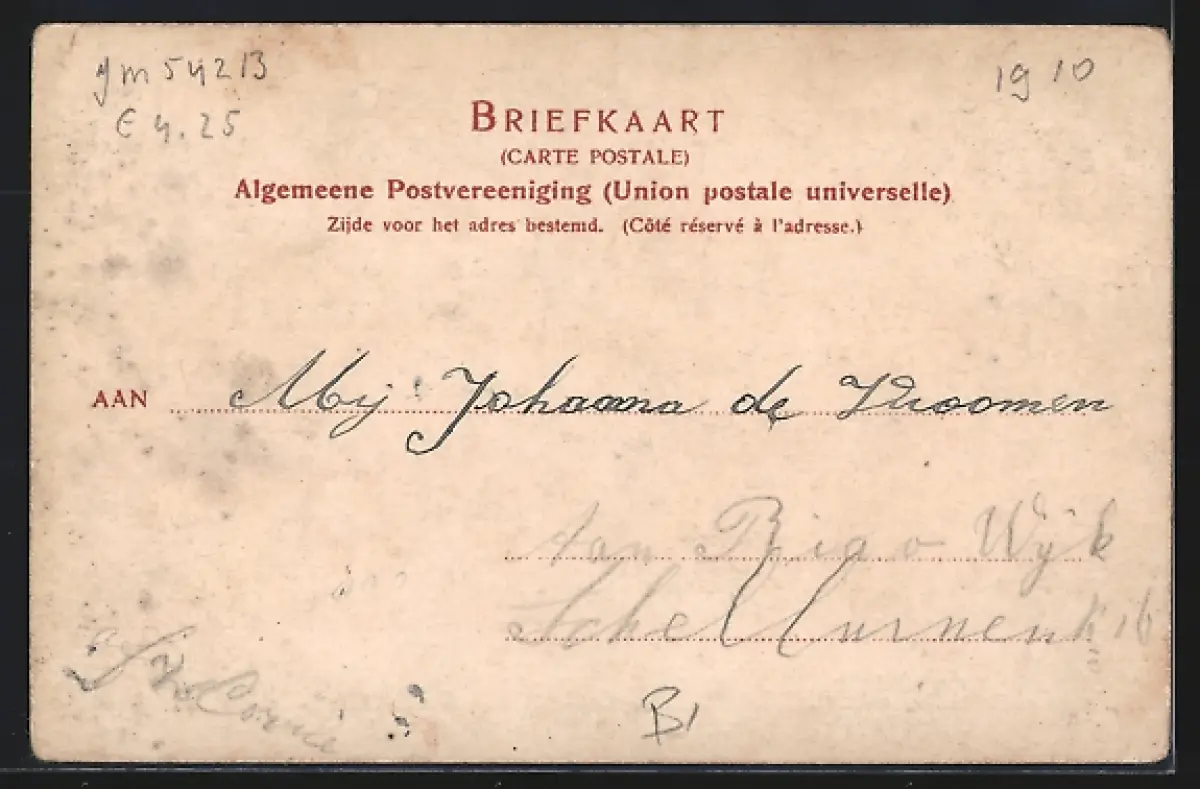 gm 54213
€ 4.25
1910
BRIEFKAART
(CARTE POSTALE)
Algemeene Postvereeniging (Union postale universelle)
Zijde voor het adres bestemd. (Côté réservé à l'adresse.)
AAN Mej Johanna de Vroomen
Wijk
B1